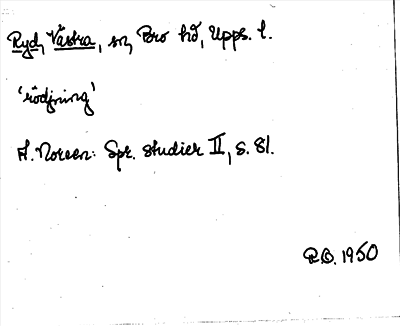 Ryd, Västra, sn, Bro hd, Upps. l.
'rödjning'
A. Noreen: Spr. studier II, s. 81.
R.B. 1950